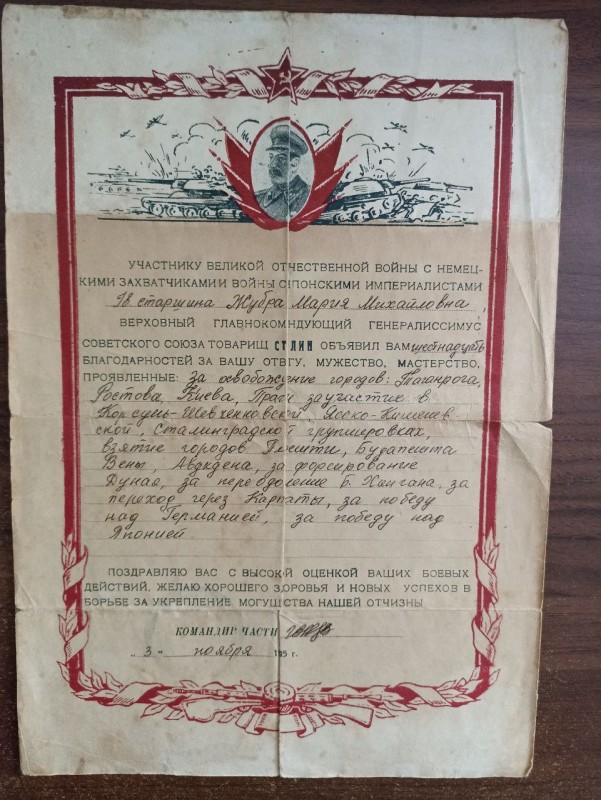 УЧАСТНИКУ ВЕЛИКОЙ ОТЧЕСТВЕННОЙ ВОЙНЫ С НЕМЕЦ-
КИМИ ЗАХВАТЧИКАМИ И ВОЙНЫ С ЯПОНСКИМИ ИМПЕРИАЛИСТАМИ
гв старшина Жубра Мария Михайловна,
ВЕРХОВНЫЙ ГЛАВНОКОМНДУЮЩИЙ ГЕНЕРАЛИССИМУС
СОВЕТСКОГО СОЮЗА ТОВАРИЩ СТЛИН ОБЪЯВИЛ ВАМ шестнадцать
БЛАГОДАРНОСТЕЙ ЗА ВАШУ ОТВГУ, МУЖЕСТВО, МАСТЕРСТВО,
ПРОЯВЛЕННЫЕ: за освобождение городов: Таганрога,
Ростова, Киева, Праги за участие в
Корсунь-Шевченковской, Ясско-Кишенев
ской, Сталинградской групировках,
взятие городов Плешти, Будапешта
Вены, за форсирование
Дуная, за переодоление Б. Хингана, за
переход через Карпаты, за победу
над Германией, за победу над
Японией
ПОЗДРАВЛЯЮ ВАС С ВЫСОКОЙ ОЦЕНКОЙ ВАШИХ БОЕВЫХ
ДЕЙСТВИЙ, ЖЕЛАЮ ХОРОШЕГО ЗДОРОВЬЯ И НОВЫХ УСПЕХОВ В
БОРЬБЕ ЗА УКРЕПЛЕНИЕ МОГУЩЕСТВА НАШЕЙ ОТЧИЗНЫ
КОМАНДИР ЧАСТИ
„3" ноября 195 г.